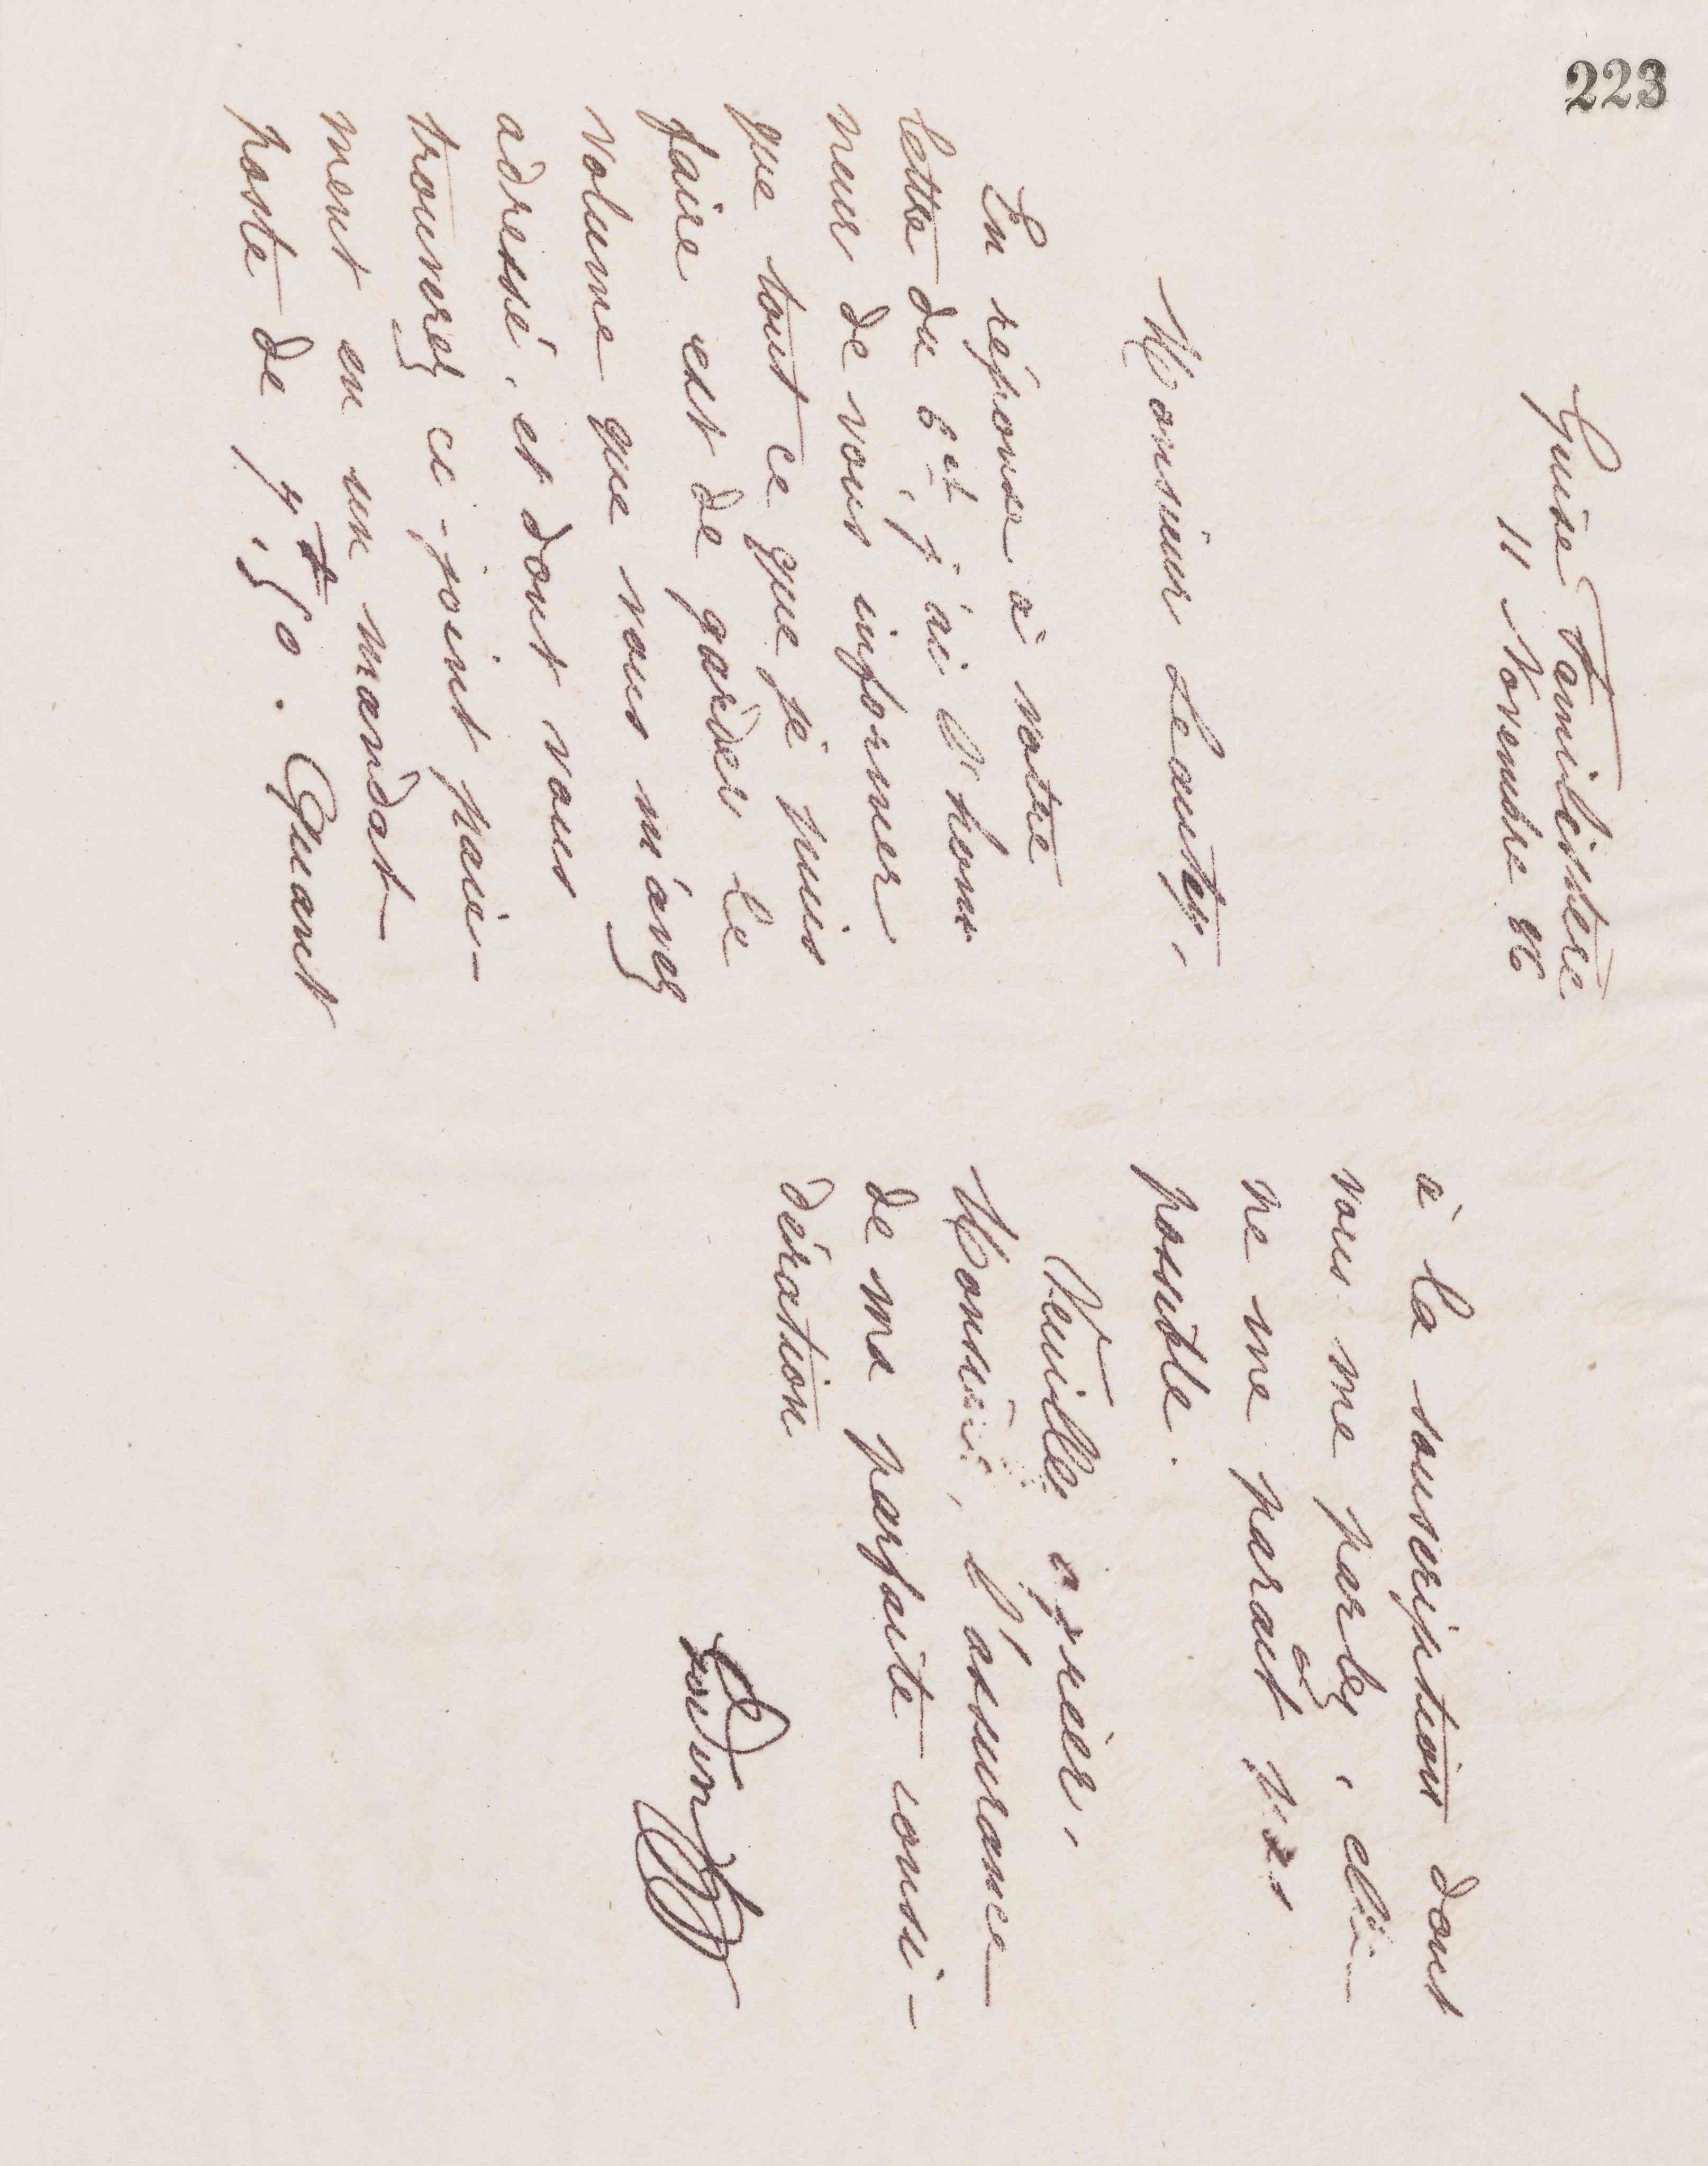 223
Guise Familistère
11 Novembre 86
Monsieur Léautey,
En réponse à votre
lettre du 6 ct, j'ai l'hon
neur de vous informer
que tout ce que je puis
faire est de garder le
volume que vous m'avez
adressé, et dont vous
trouverez ci-joint paie-
ment en un mandat-
poste de 7f,50. Quant
à la souscription dont
vous me parlez, elle
ne me paraît pas
possible.
Veuillez agréer,
Monsieur, l'assurance
de ma parfaite consi-
dération
Godin